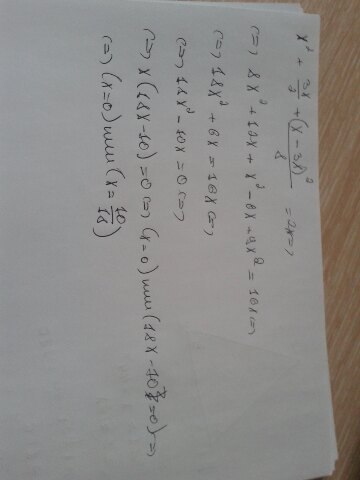 x² + 3x/2 + (x - 3x)²/8 = 2x (=)
(=) 8x² + 12x + x² - 6x + 9x² = 16x (=)
(=) 18x² + 6x = 16x (=)
(=) 18x² - 10x = 0 (=)
(=) x(18x-10) = 0 (=) (x = 0) или (18x - 10 = 0) (=)
(=) (x=0) или (x = 10/18)